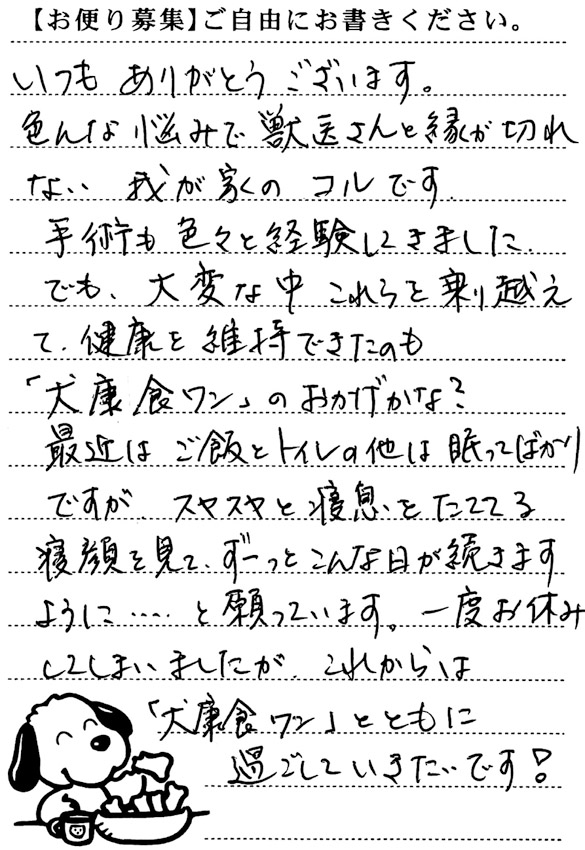 【お便り募集】ご自由にお書きください。
いつも ありがとう ございます。
色んな 悩みで 獣医さんと縁が 切れ
ない 我が家の コルです.
手術も 色々と経験してきました.
でも、大変な中 これらを乗り越え
て、健康を維持できたのも
「犬康食ワン」のおかげかな?
最近は ご飯とトイレの他は眠ってばかり
ですが、スヤスヤと寝息をたててる
寝顔を見て、ずーっとこんな日が続きます
ように‥‥と願っています。一度お休み
してしまいましたが、これからは
「犬康食ワン」とともに
過ごしていきたいです!